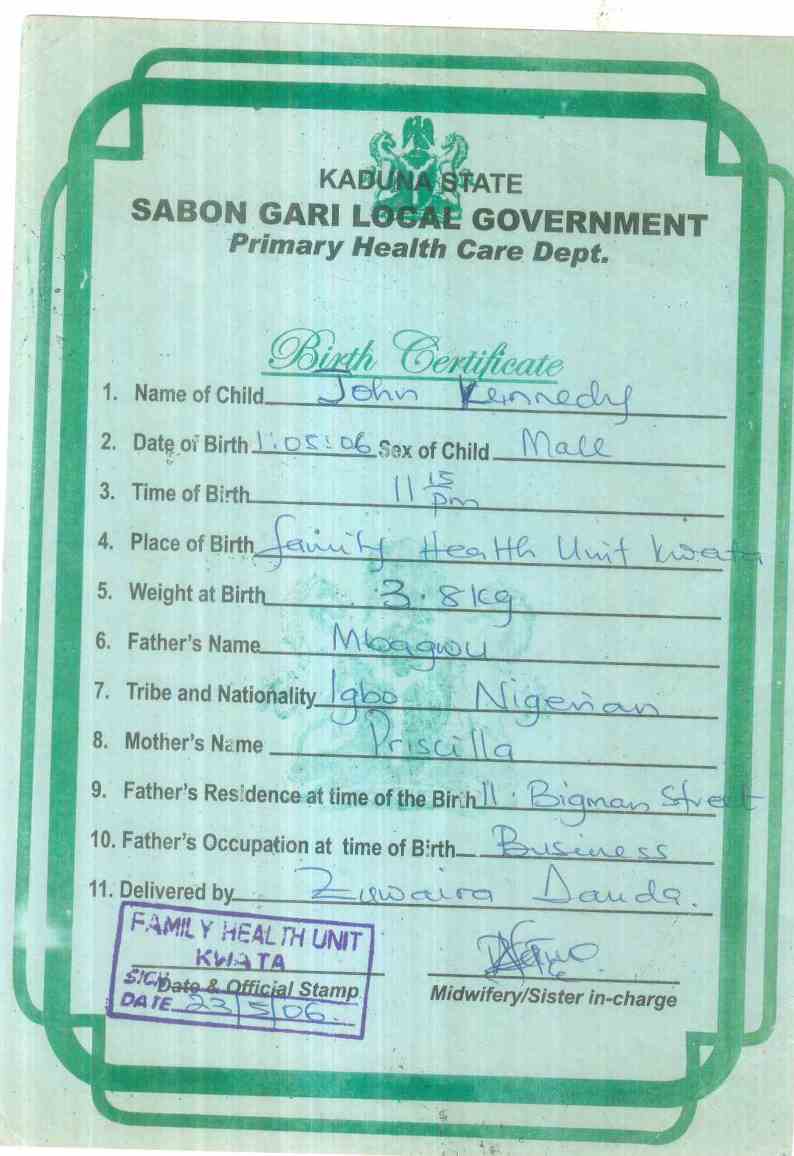 KADUNA STATE
SABON GARI LOCAL GOVERNMENT
Primary Health Care Dept.
Birth Certificate
1. Name of Child John Kennedy
2. Date of Birth 1:05:06 Sex of Child Male
3. Time of Birth 11 15 pm
4. Place of Birth family Health Unit Kwata
5. Weight at Birth 3.8kg
6. Father's Name Mbagwu
7. Tribe and Nationality Igbo Nigerian
8. Mother's Name Priscilla
9. Father's Residence at time of the Birth 11. Bigman Street
10. Father's Occupation at time of Birth Business
11. Delivered by Zuwaira Dauda.
FAMILY HEALTH UNIT
KWATA
SIGN
Date & Official Stamp
DATE 23/5/06.
Midwifery/Sister in-charge